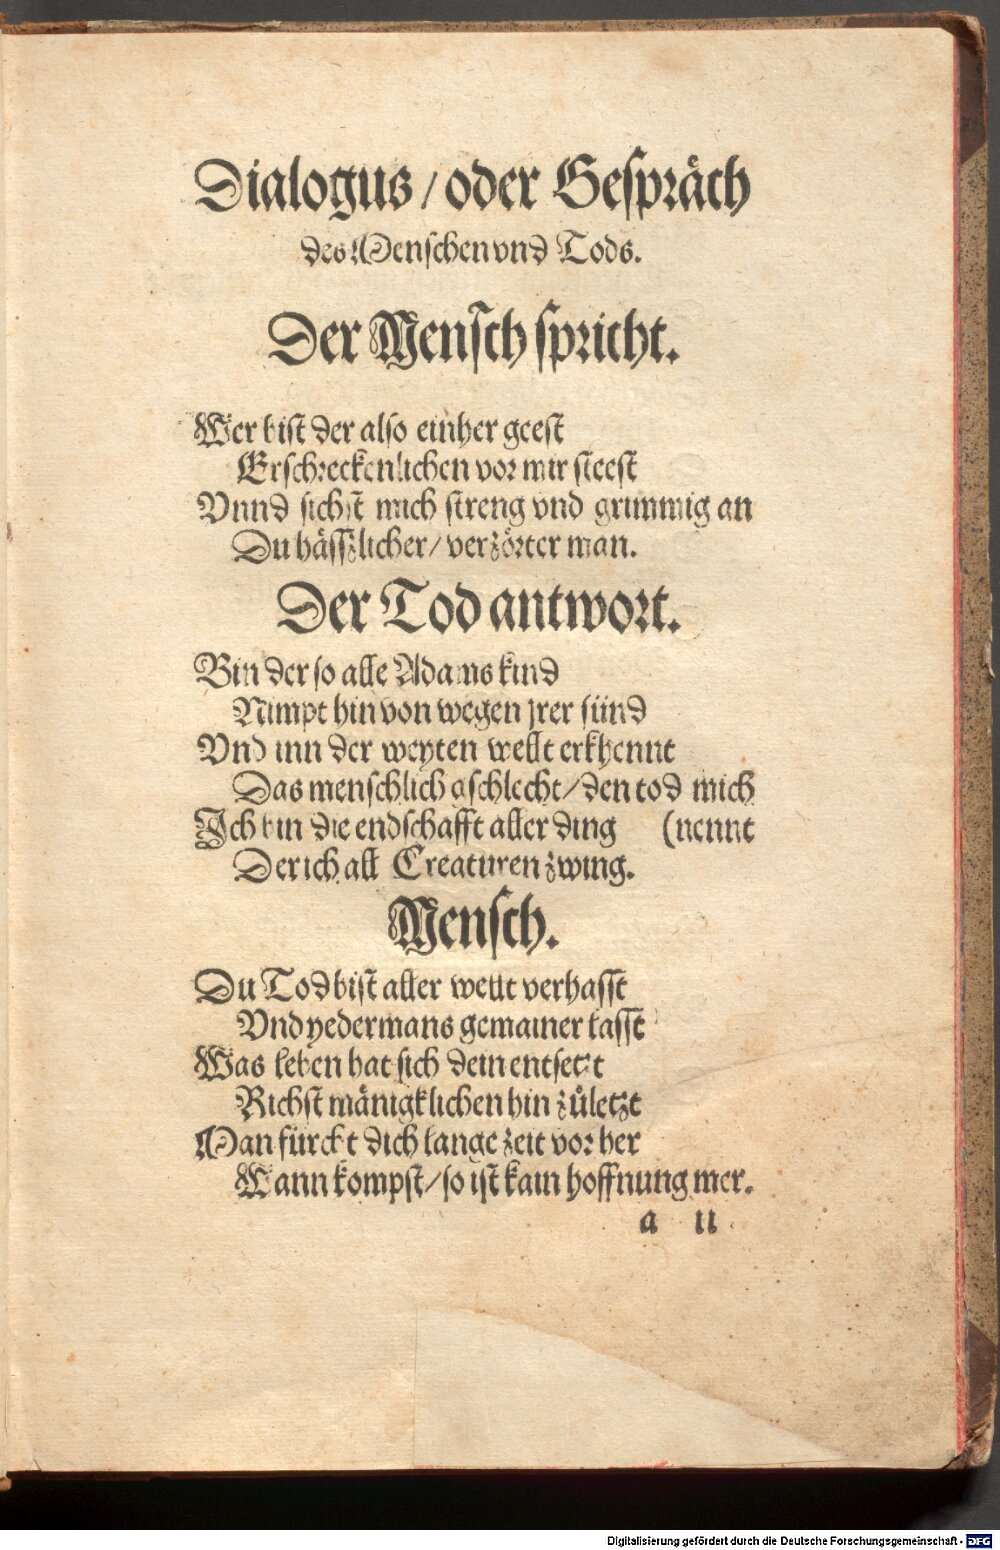 Dialogus / oder Gespräch
des Menschen vnd Tods.
Der Mensch spricht.
Wer bist der also einher geest
Erschreckenlichen vor mir steest
Vnnd sichst mich streng vnd grimmig an
Du hässzlicher / verzörter man.
Der Tod antwort.
Bin der so alle Adams kind
Nimpt hin von wegen jrer sünd
Vnd inn der weyten wellt erkhennt
Das menschlich gschlecht / den tod mich
Ich bin die endschafft aller ding (nennt
Der ich all Creaturen zwing.
Mensch.
Du Tod bist aller wellt verhasst
Vnd yedermans gemainer lasst
Was leben hat sich dein entsetzt
Richst mänigklichen hin zůletzt
Man fürcht dich lange zeit vor her
Wann kompst / so ist kain hoffnung mer.
a ii
Digitalisierung gefördert durch die Deutsche Forschungsgemeinschaft - DFG